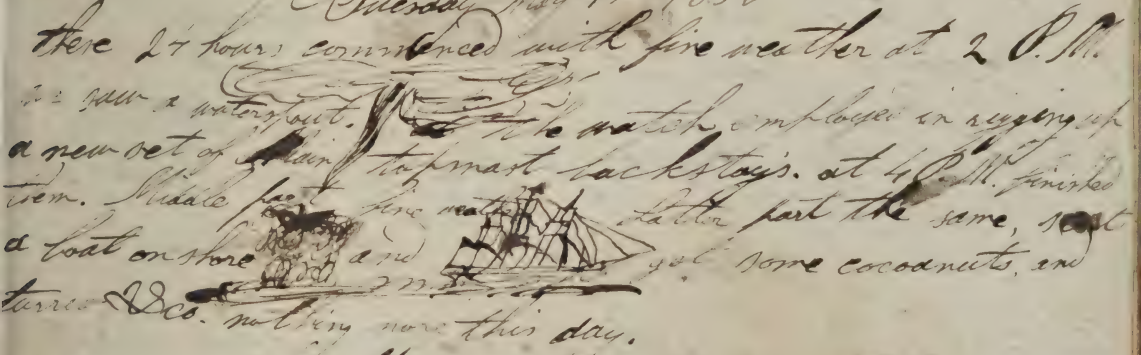 Tuesday May 17
there 24 hours commenced with fine weather at 2 P.M.
we saw a waterspout. the watch employed in rigging up
a new set of Main topmast backstays. at 4 P.M. finished
them. Middle part fine weather latter part the same, sent
a boat on shore and got some cocoanuts, and
&co. nothing more this day.